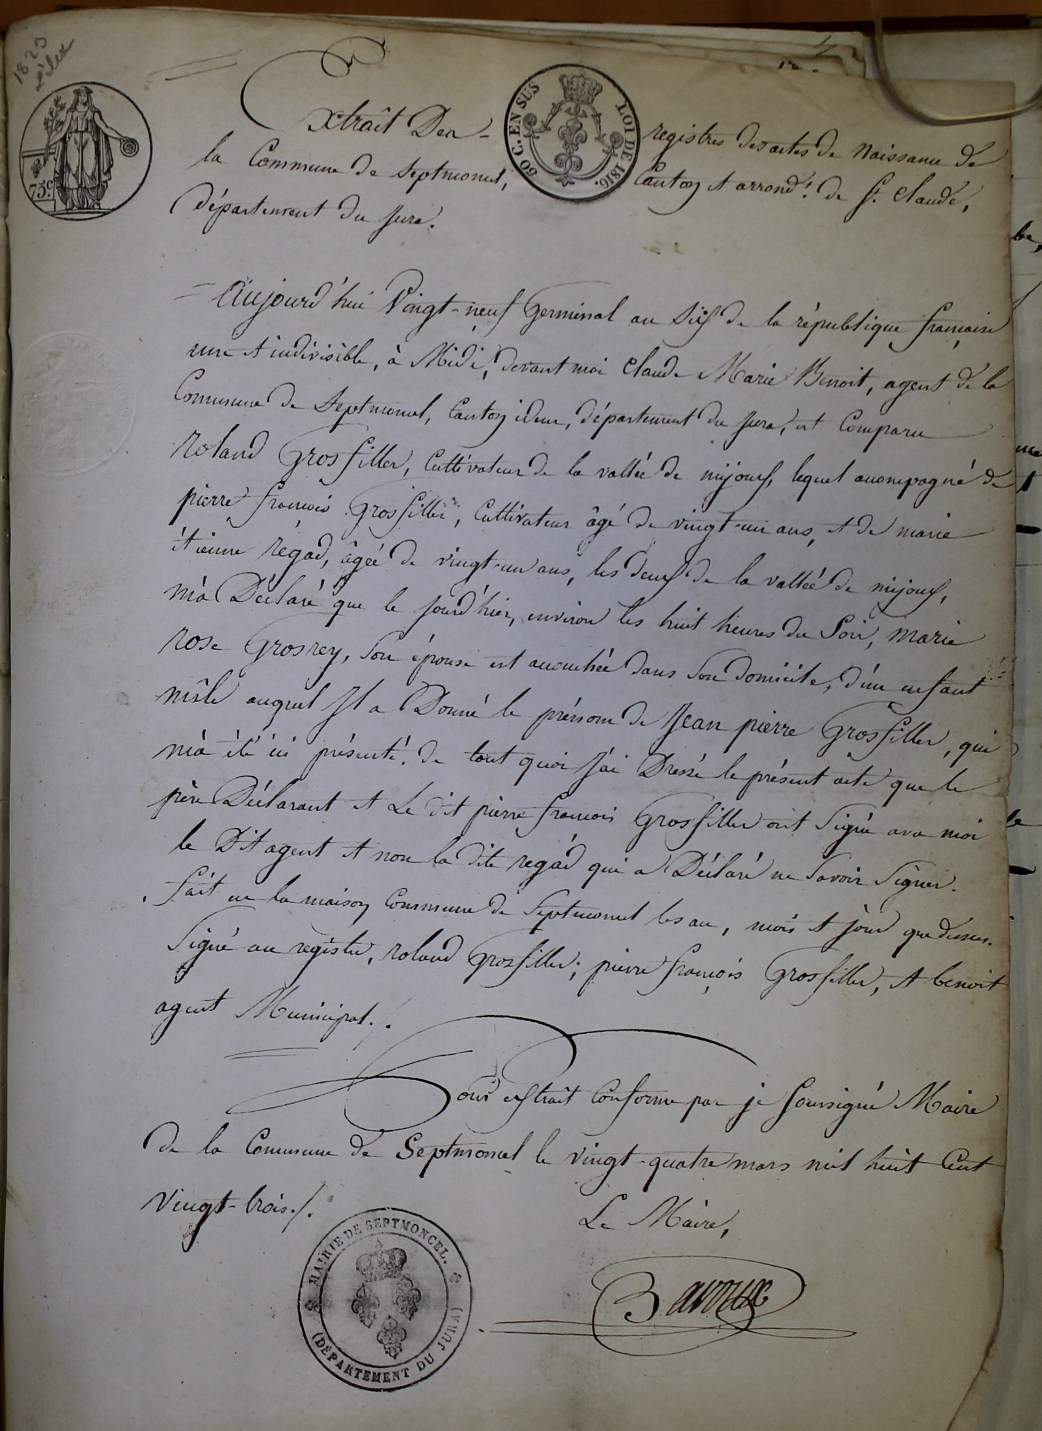 1823
75c
50 C. EN SUS LOI DE 1816.
Extrait Des registres des actes de Naissance de
la Commune de Septmoncel, Canton et arrond.t de St. Claude,
département du Jura.
Aujourd'hui Vingt-neuf Germinal an Dix de la république française
une et indivisible, à Midi, devant moi Claude Marie Benoit, agent de la
Commune de Septmoncel, Canton idem, département du Jura, est Comparu
roland Grosfiller, Cultivateur de la vallée de mijoux, lequel accompagné de
pierre françois Grosfiller, Cultivateur âgé de vingt-un ans, et de marie
étienne regad, âgée de vingt-un ans, les deux de la vallée de mijoux,
m'a Déclaré que le jourd'hier, environ les huit heures du Soir, marie
rose Grosrey, Son épouse est accouchée dans Son domicile, d'un enfant
mâle auquel Il a Donné le prénom de Jean pierre Grosfiller, qui
m'a été ici présenté. de tout quoi J'ai Dressé le présent acte que le
père Déclarant et Le dit pierre françois Grosfiller ont Signé avec moi
le Dit agent et non la dite regad qui a Déclaré ne Savoir Signer.
fait en la maison Commune de Septmoncel les an, mois et jour que dessus.
Signé au registre, roland Grosfiller; pierre françois Grosfiller, et benoit
agent Municipal./.
Pour extrait Conforme par je Soussigné Maire
de la Commune de Septmoncel le vingt-quatre mars mil huit Cent
Vingt-trois./.
Le Maire,
Bavoux
MAIRIE DE SEPTMONCEL.
(DÉPARTEMENT DU JURA)